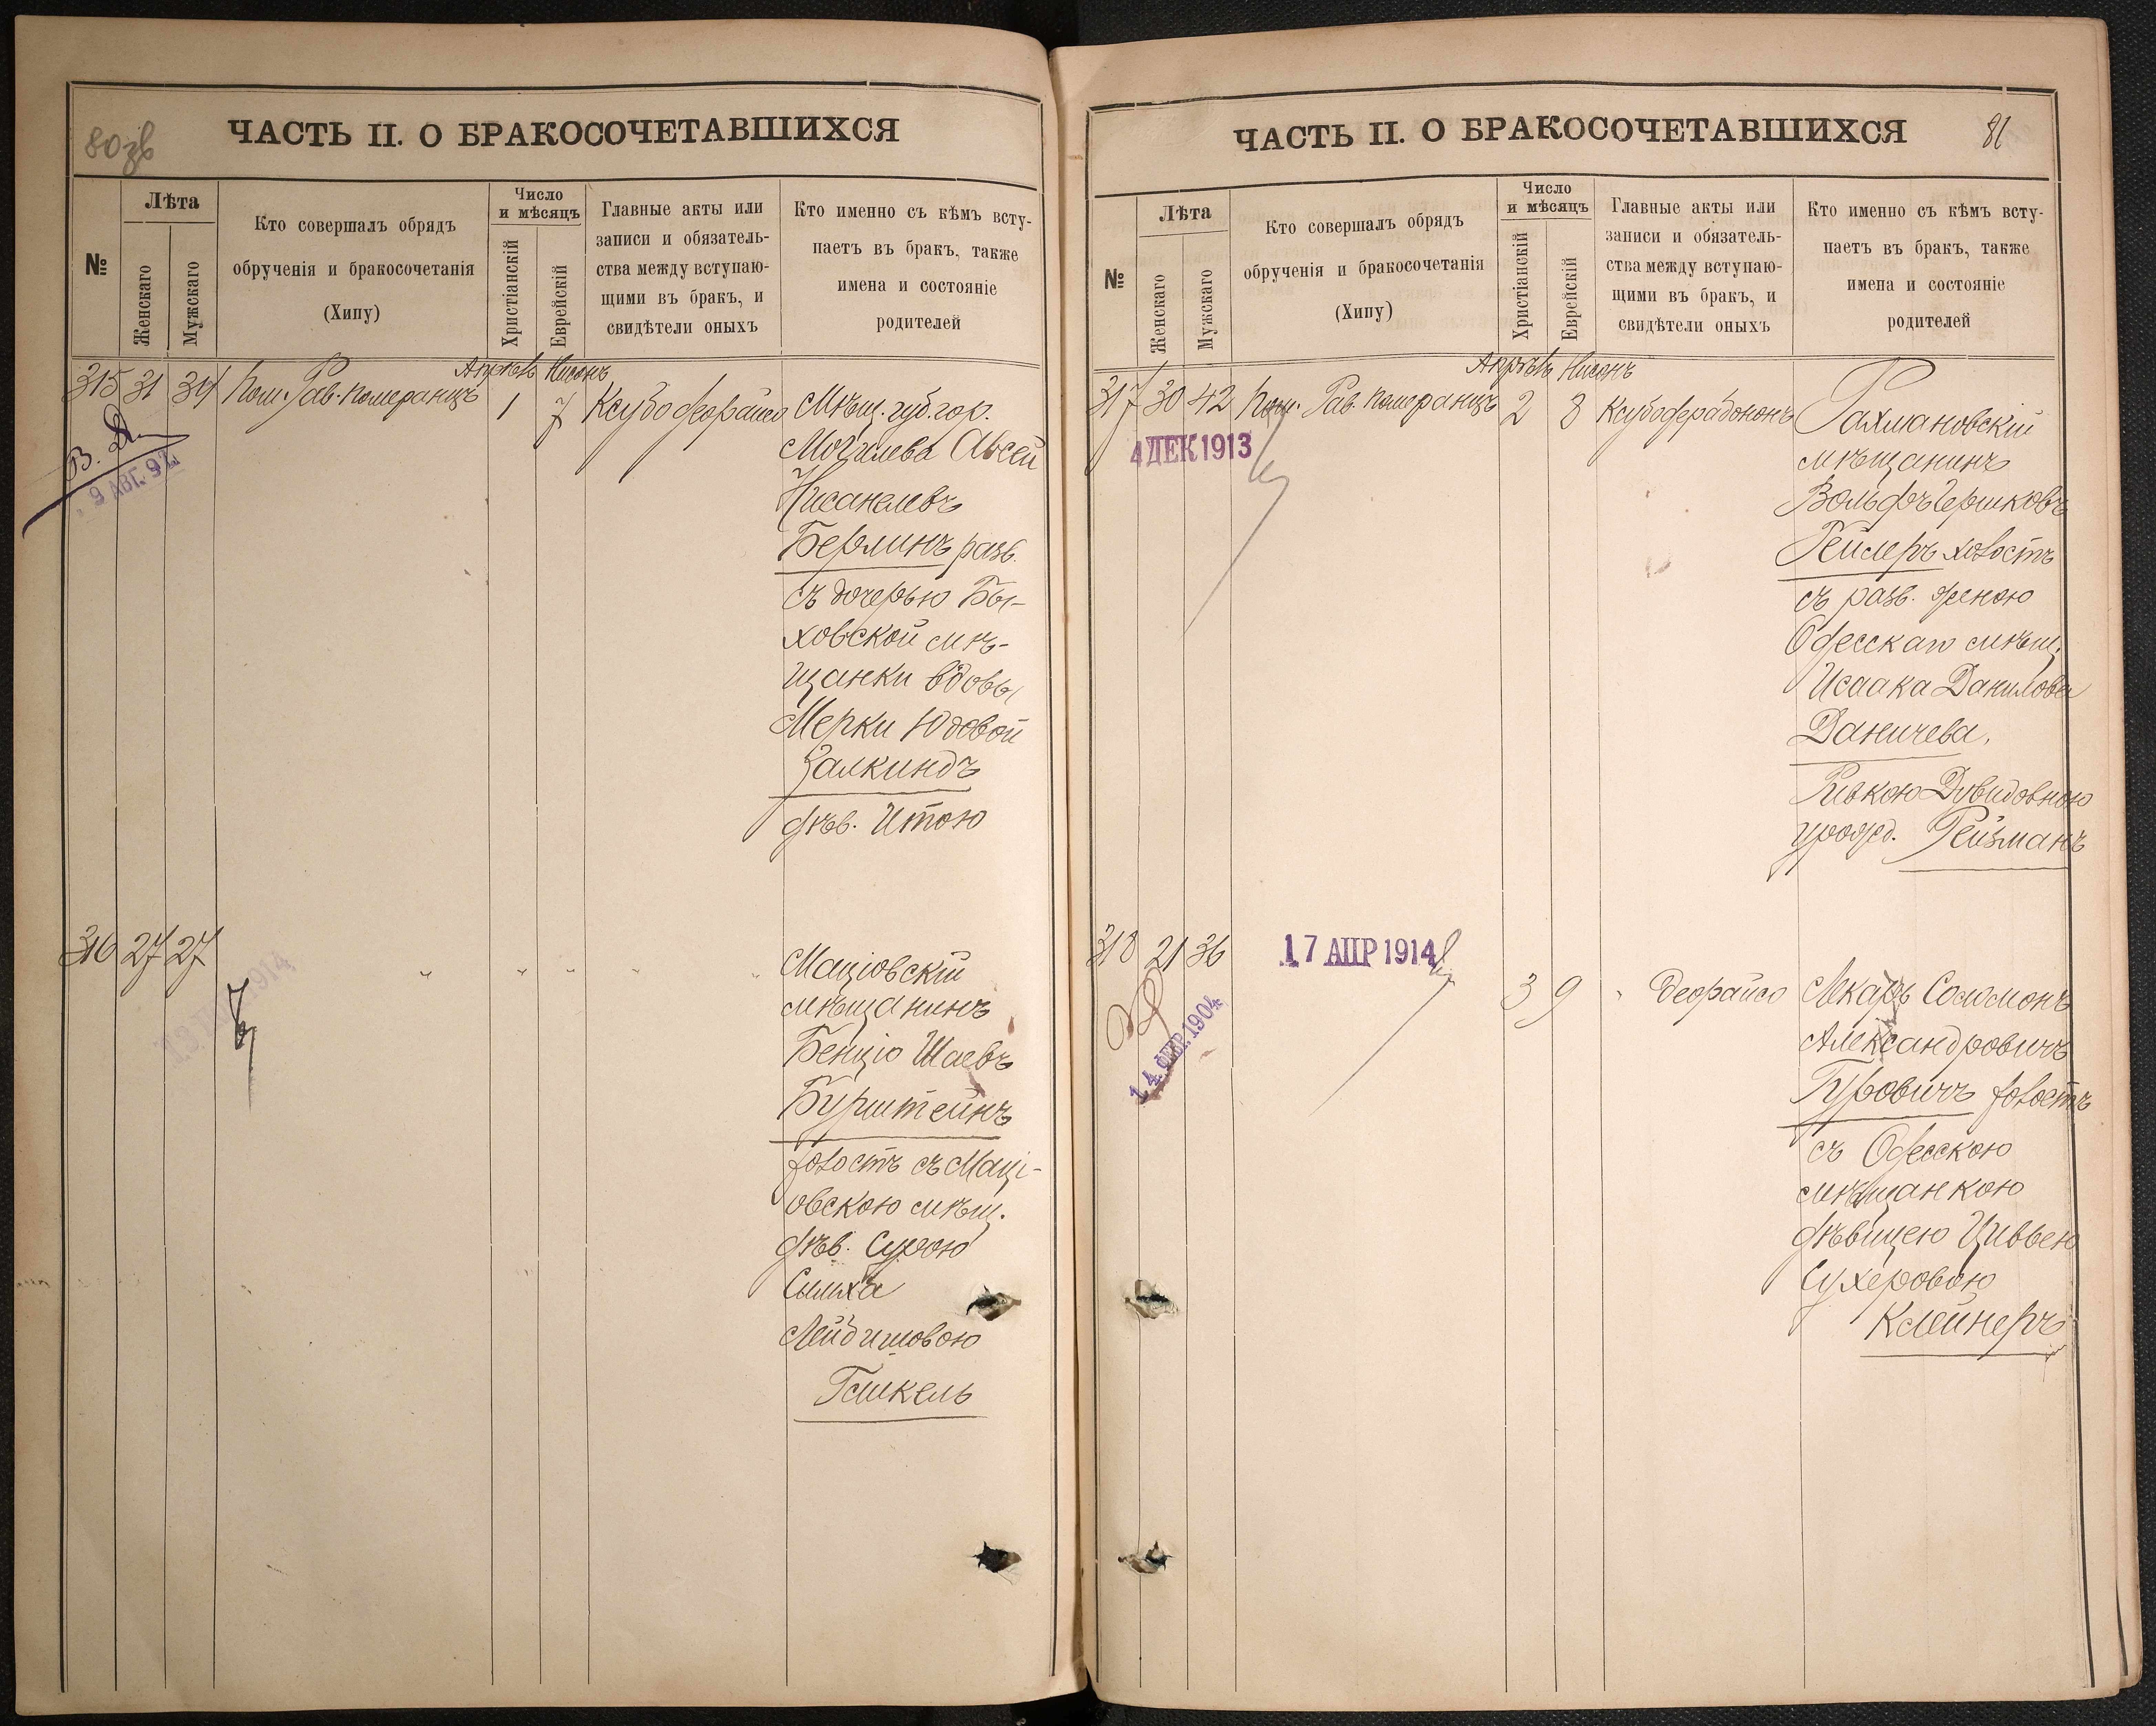 80 зв
ЧАСТЬ II. О БРАКОСОЧЕТАВШИХСЯ
№
Лѣта
Женскаго
Мужскаго
Кто совершалъ обрядъ
обрученія и бракосочетанія
(Хипу)
Число
и мѣсяцъ
Христіанскій
Еврейскій
Главные акты или
записи и обязатель-
ства между вступаю-
щими въ бракъ, и
свидѣтели оныхъ
Кто именно съ кѣмъ всту-
паетъ въ бракъ, также
имена и состояніе
родителей
Апрѣль Нисонъ
315 31 34 Пом. Рав. Померанцъ 1 7 Ксубо деорайсо
Мѣщ. губ. гор.
Могилева Авсей
Нисанелевъ
Берлинъ разв.
съ дочерью Бы-
ховской мѣ-
щанки вдовы
Мерки Юдовой
Залкиндъ
дѣв. Итою
9 АВГ. 92
316 27 27 " " " " "
Маціовскій
мѣщанинъ
Бенціо Шаевъ
Бурштейнъ
холостъ съ Маці-
овскою мѣщ.
дѣв. Сурою
Сыма
Лейбишовою
1914
ЧАСТЬ II. О БРАКОСОЧЕТАВШИХСЯ
81
№
Лѣта
Женскаго
Мужскаго
Кто совершалъ обрядъ
обрученія и бракосочетанія
(Хипу)
Число
и мѣсяцъ
Христіанскій
Еврейскій
Главные акты или
записи и обязатель-
ства между вступаю-
щими въ бракъ, и
свидѣтели оныхъ
Кто именно съ кѣмъ всту-
паетъ въ бракъ, также
имена и состояніе
родителей
Апрѣль Нисонъ
317 30 42 Пом. Рав. Померанцъ 2 8 Ксубо дерабононъ
4 ДЕК 1913
Рахмановскій
мѣщанинъ
Вольфъ Гершковъ
Гейлеръ холостъ
съ разв. женою
Одесскаго мѣщ.
Исаака Данилова
Даничева,
Ривкою Дувидовною
урожд. Рейзманъ
318 21 36
17 АПР 1914
14 ФЕВР. 1904
3 9 " деорайсо
Лекарь Соломонъ
Александровичъ
Гуровичъ холостъ
съ Одесскою
мѣщанкою
дѣвицею Цивьею
Сухеровою
Клейнеръ